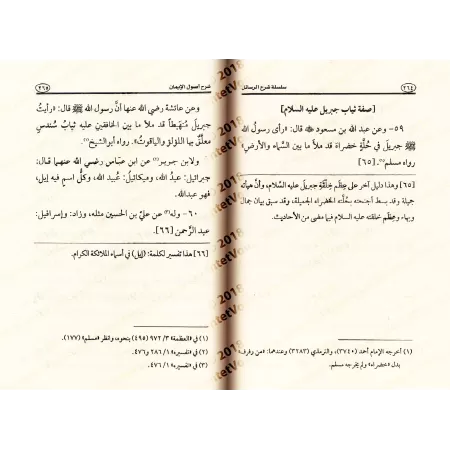 ٢٦٤
سلسلة شرح الرسائل
[صفة ثياب جبريل عليه السلام]
٥٩ - وعن عبد الله بن مسعود ﵁ قال: «رأى رسول الله
ﷺ جبريل في حُلَّة خضراء قد ملأ ما بين السَّماء والأرض»
رواه مسلم(١). [٦٥]
[٦٥] وهذا دليل آخر على عِظَم خِلْقَةِ جبريل عليه السَّلام، وأنَّ هيأته
جميلة وقد بسط أجنحته بحُلَّته الخضراء الجميلة، وقد سبق بيان جمال
وبهاء وعِظَم خلقته عليه السلام فيما مضى من الأحاديث.
(١) أخرجه الإمام أحمد (٣٧٤٠)، والترمذي (٣٢٨٣) وعندهما: «من رفرف»
بدل «خضراء» ولم يخرجه مسلم.
شرح أصول الإيمان
٢٦٥
وعن عائشة رضي الله عنها أنَّ رسول الله ﷺ قال: «رأيتُ
جبريلَ مُنْهَبِطاً قد ملأ ما بين الخافقين عليه ثيابُ سُندسٍ
معلَّقٌ بها اللؤلؤ والياقوت». رواه أبو الشيخ(١).
ولابن جرير(٢) عن ابن عبّاس رضي الله عنهما قال:
جبرائيل: عبدُ الله، وميكائيلُ: عُبيد الله، وكلُّ اسمٍ فيه إيل،
فهو عبدالله.
٦٠ - وله(٣) عن عليِّ بن الحسين مثله، وزاد: وإسرافيل:
عبد الرَّحمن [٦٦].
[٦٦] هذا تفسير لكلمة: (إيل) في أسماء الملائكة الكرام.
(١) في «العظمة» ٣/ ٩٧٢ (٤٩٥) بنحوه، وانظر «مسلم» (١٧٧).
(٢) في «تفسيره» ١/ ٢٨٦ و٤٧٦.
(٣) في «تفسيره» ١/ ٤٧٦.
2018
2018
2018
2018